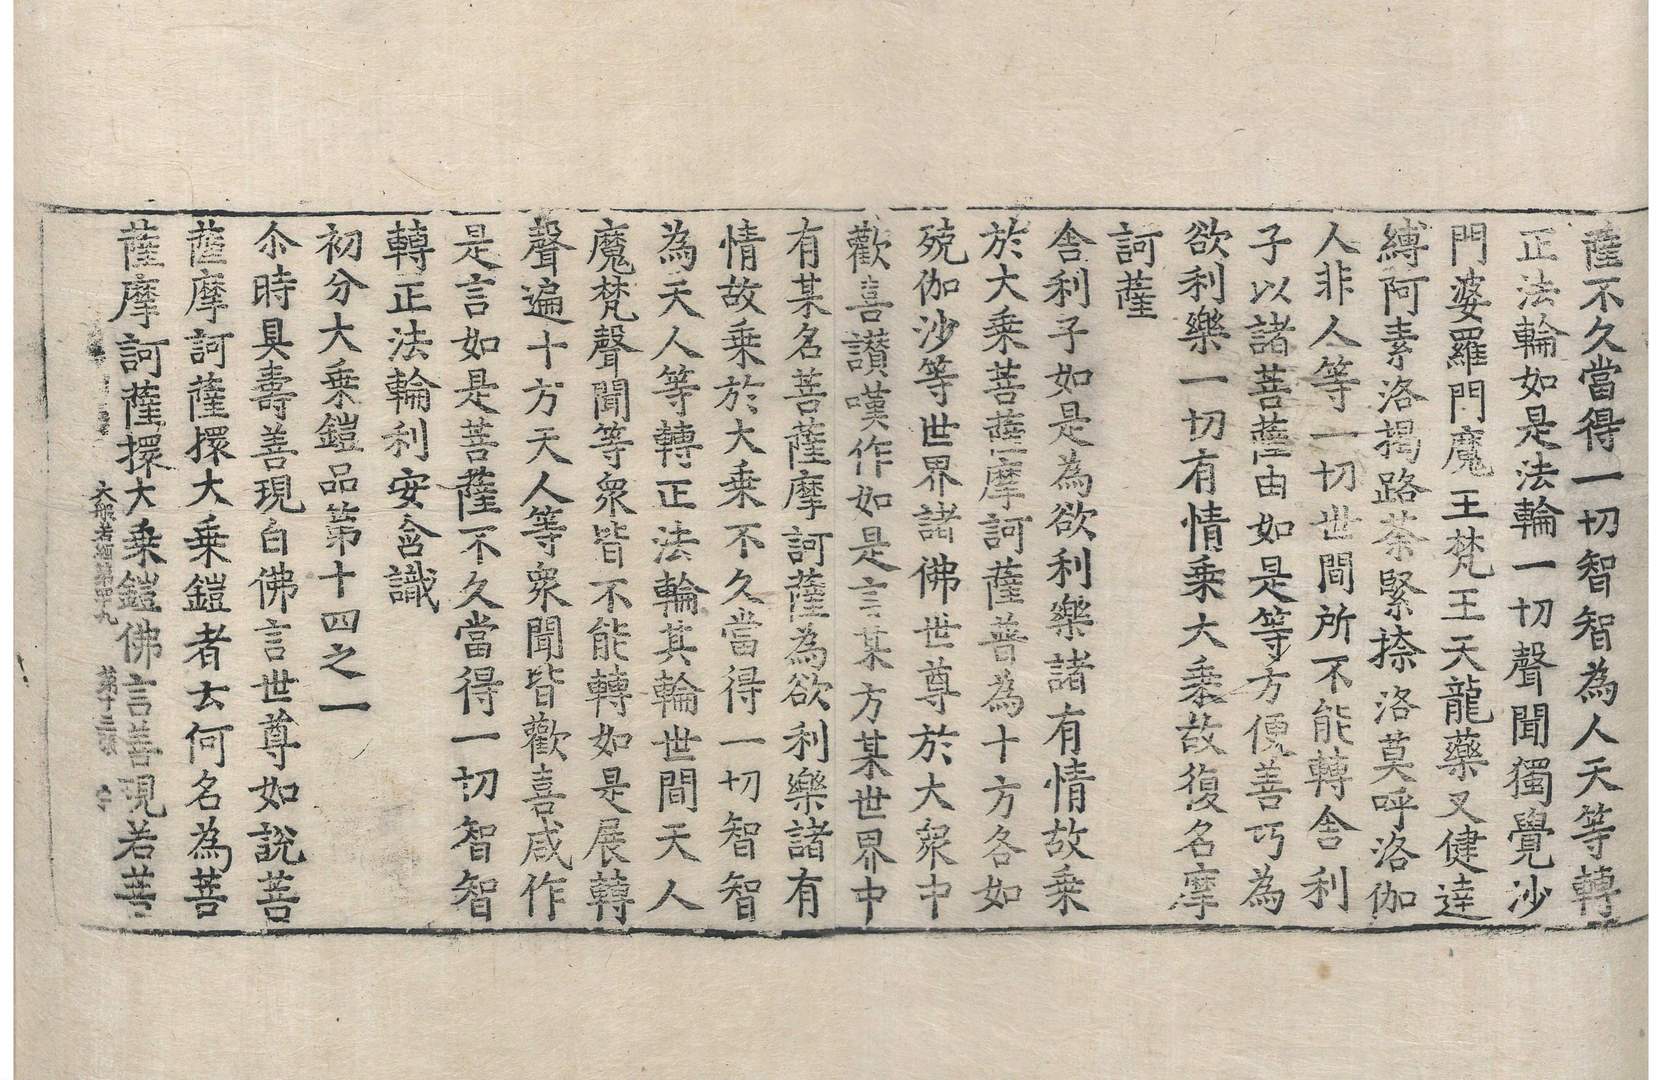 薩不久當得一切智智為人天等轉
正法輪如是法輪一切聲聞獨覺沙
門婆羅門魔王梵王天龍藥叉健達
縛阿素洛揭路荼緊捺洛莫呼洛伽
人非人等一切世間所不能轉舍利
子以諸菩薩由如是等方便善巧為
欲利樂一切有情乗大乗故復名摩
訶薩
舍利子如是為欲利樂諸有情故乗
於大乗菩薩摩訶薩普為十方各如
殑伽沙等世界諸佛世尊於大衆中
歡喜讃嘆作如是言某方某世界中
有某名菩薩摩訶薩為欲利樂諸有
情故乗於大乗不久當得一切智智
為天人等轉正法輪其輪世間天人
魔梵聲聞等衆皆不能轉如是展轉
聲遍十方天人等衆聞皆歡喜咸作
是言如是菩薩不久當得一切智智
轉正法輪利安含識
初分大乗鎧品第十四之一
尒時具壽善現白佛言世尊如說菩
薩摩訶薩擐大乗鎧者云何名為菩
薩摩訶薩擐大乗鎧佛言善現若菩
大般若經第四十九 第十二張